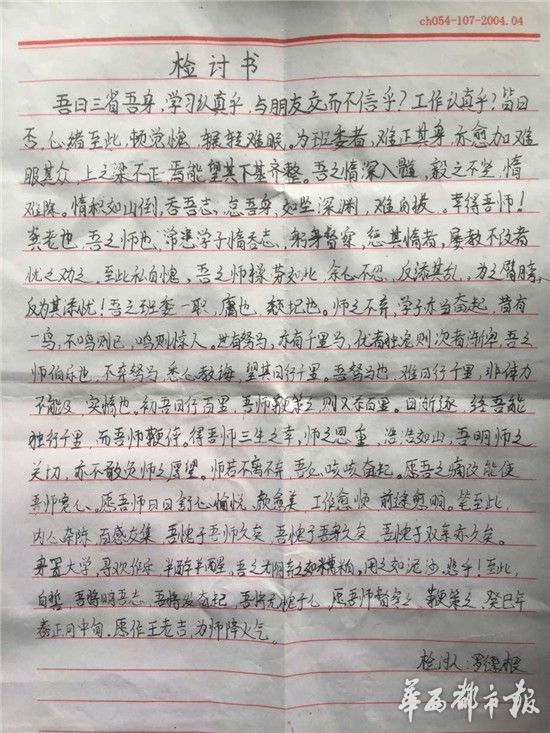 ch054-107-2004.04
检讨书
吾日三省吾身,学习认真乎,与朋友交而不信乎?工作认真乎?皆曰
否,心绪至此,顿觉愧,辗转难眠。为班委者,难正其身,亦愈加难
服其众,上之梁不正,焉能望其下基齐整。吾之惰深入髓,毅之不坚,惰
难除。惰积如山倒,丢吾志,怠吾身,如坠深渊,难自拔。幸得吾师!
龚老也,吾之师也,常悲学子惰丢志,躬身督察,惩其惰者,屡教不改者
忧之劝之。至此私自愧,吾之师操劳如此,余心不忍,反添其乱,为之臂膀,
反为其添忧!吾之班委一职,腐也,颓圮也。师之不弃,学子亦当奋起,昔有
一鸟,不鸣则已,鸣则惊人。世有驽马,亦有千里马,优者独宠则次者渐卑,吾之
师伯乐也,不弃驽马,悉心教诲,望其日行千里。吾驽马也,难日行千里,非体力
不能及,实惰也。初吾日行百里,吾师鞭策之则又添百里。日渐逐,终吾能
独行千里,而吾师鞭侍。得吾师三生之幸,师之恩重,浩浩如山,吾明师之
关切,亦不敢负师之厚望。师若不离不弃,吾必咬咬奋起。愿吾之痛改能使
吾师宽心。愿吾师日日舒心愉悦,颜愈美,工作愈顺,前途愈明。笔至此
内心杂陈,百感交集,吾愧于吾师久矣,吾愧于吾身久矣,吾愧于双亲亦久矣。
身置大学,寻欢作乐,半醉半醒,吾之光阴弃之如糟粕,用之如泥沙,悲乎!至此,
自誓,吾将明吾志,吾将发奋起,吾将无愧于心,愿吾师督察之,鞭策之,癸巳年
春正月中旬。愿作王老吉,为师降火气。
检讨人:罗根
华西都市报